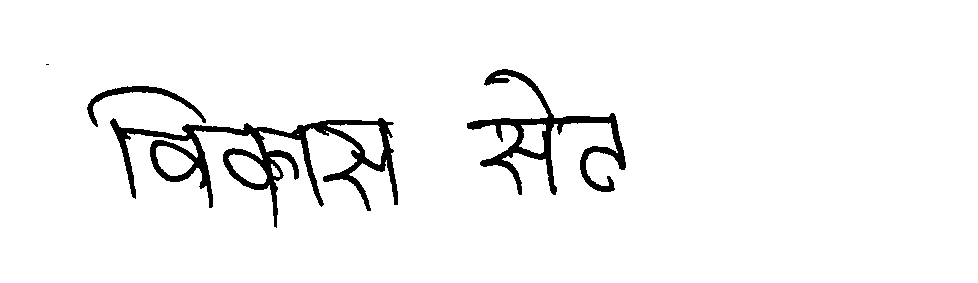 विकास सेट